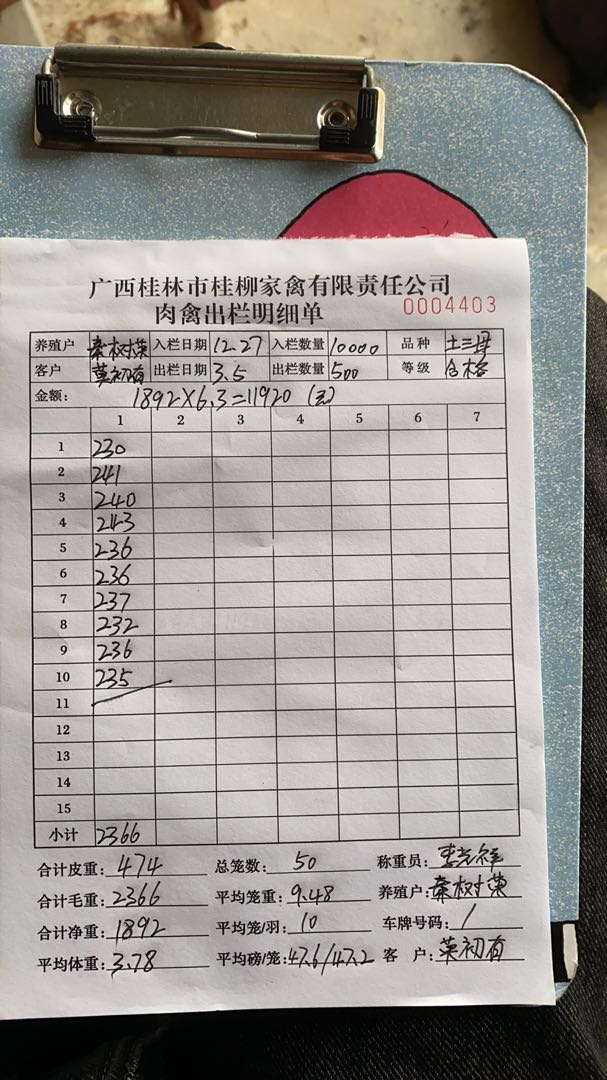 广西桂林市桂柳家禽有限责任公司
肉禽出栏明细单 0004403
养殖户 秦树荣 入栏日期 12.27 入栏数量 10000 品种 土三母
客户 莫初有 出栏日期 3.5 出栏数量 500 等级 合格
金额: 1892×6.3=11920(元)
1 2 3 4 5 6 7
1 230
2 241
3 240
4 243
5 236
6 236
7 237
8 232
9 236
10 235
11
12
13
14
15
小计 2366
合计皮重: 474 总笼数: 50 称重员:
合计毛重: 2366 平均笼重: 9.48 养殖户: 秦树荣
合计净重: 1892 平均笼/羽: 10 车牌号码: /
平均体重: 3.78 平均磅/笼: 47.6/47.2 客 户: 莫初有